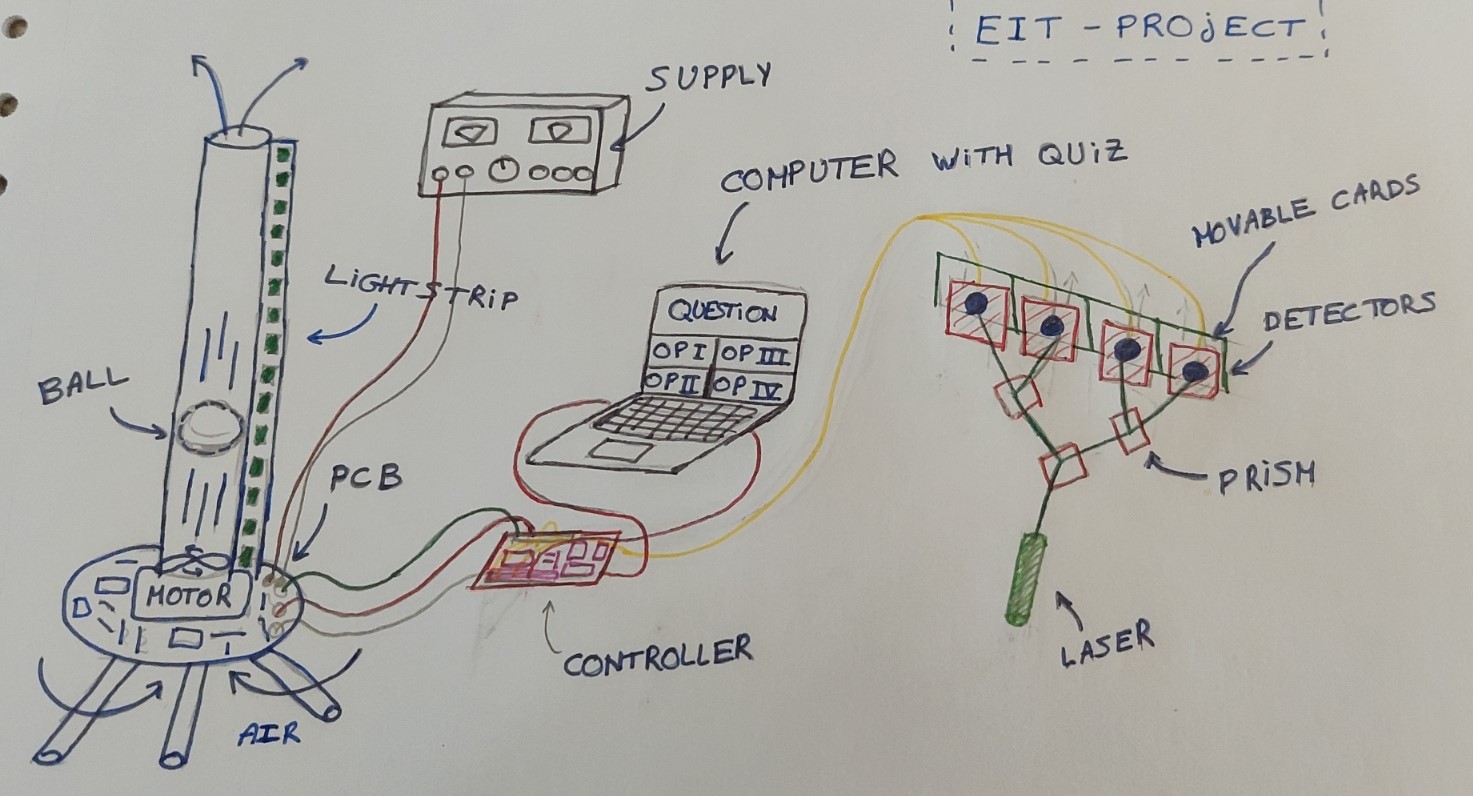 EIT - PROjECT
SUPPLY
COMPUTER WiTH QUiZ
MOVABLE CARDS
LiGHTSTRiP
QUESTiON
DETECTORS
OP I OP III
OP II OP IV
BALL
PCB
PRiSM
MOTOR
CONTROLLER
LASER
AIR